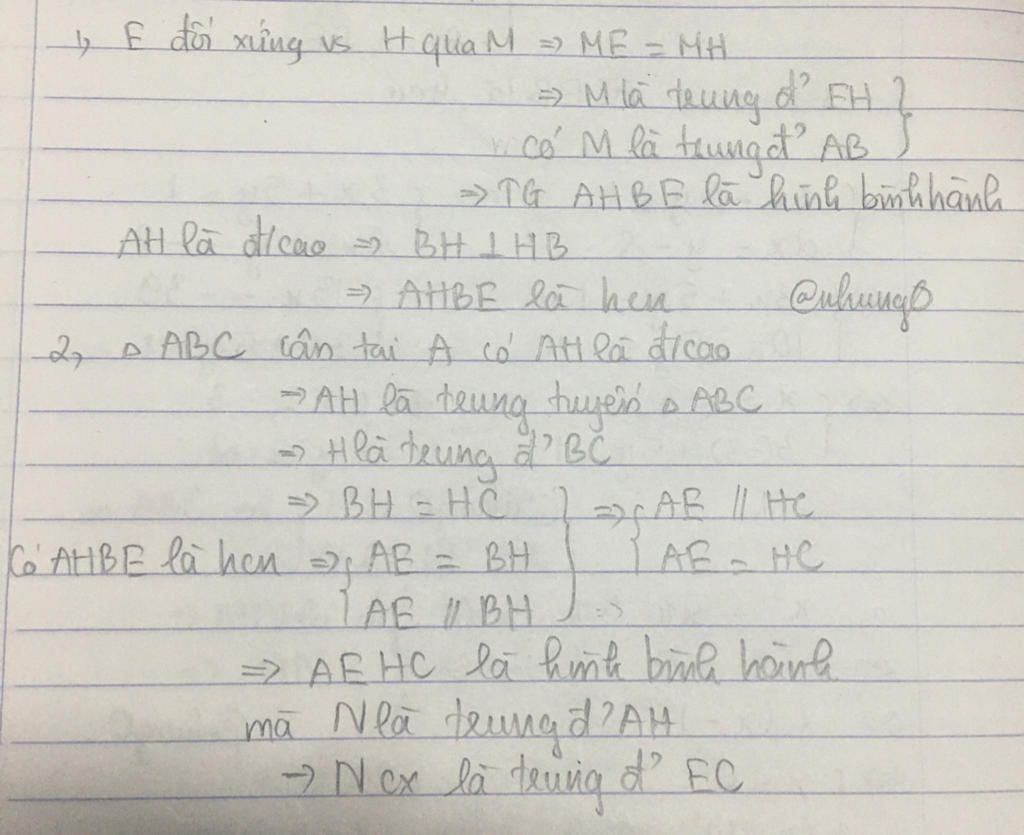 1, E đối xứng vs H qua M => ME = MH
=> M là trung đ' EH
có M là trung đ' AB
=> TG AHBE là hình bình hành
AH là đ/cao => BH ⊥ HB
=> AHBE là hcn @nhung8
2, △ ABC cân tại A có AH là đ/cao
=> AH là trung tuyến △ ABC
=> H là trung đ' BC
=> BH = HC } => { AE // HC
Có AHBE là hcn => { AE = BH } { AE = HC
{ AE // BH } =>
=> AEHC là hình bình hành
mà N là trung đ' AH
-> N cx là trung đ' EC